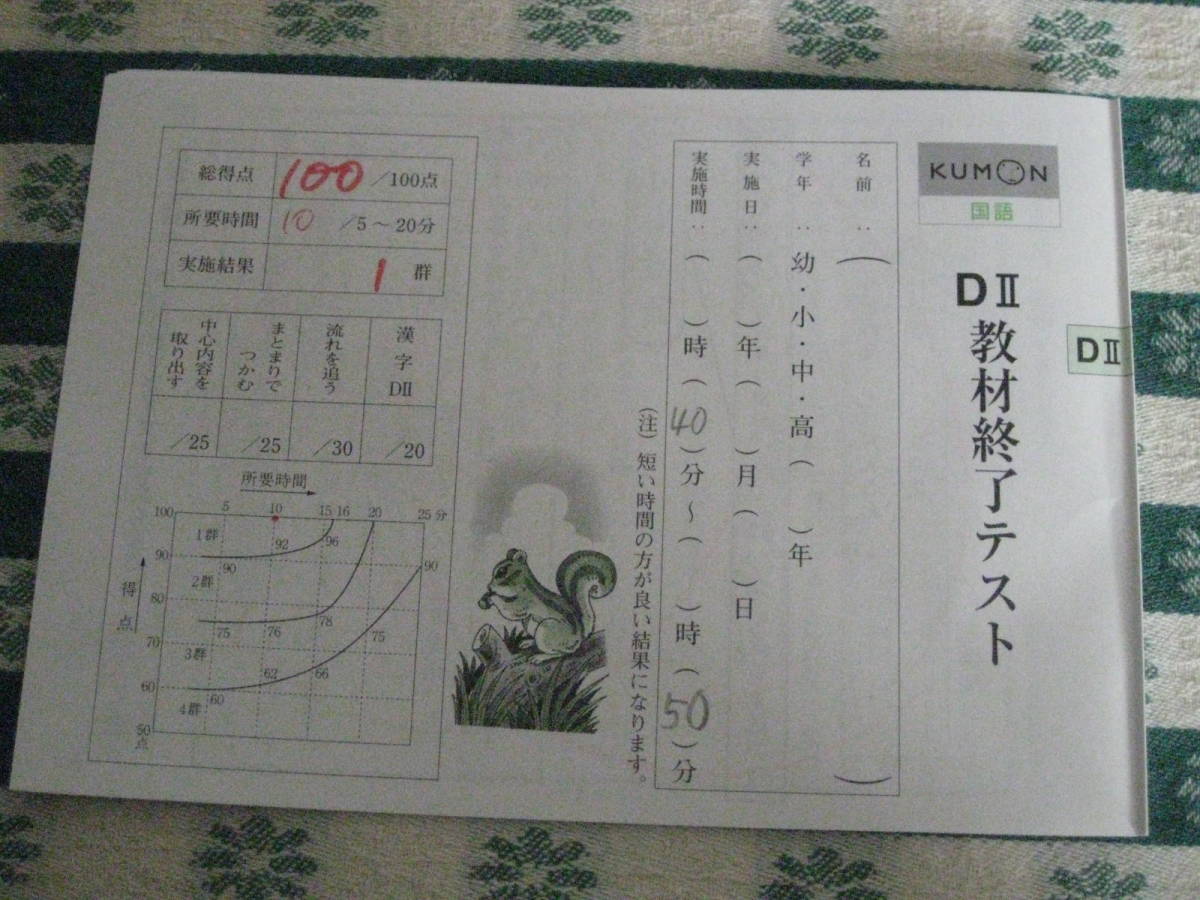 KUMON
国語
DⅡ
DⅡ教材終了テスト
名前：（　　）
学年：幼・小・中・高（　　）年
実施日：（　　）年（　　）月（　　）日
実施時間：（　　）時（40）分～（　　）時（50）分
（注）短い時間の方が良い結果になります。
総得点 100 /100点
所要時間 10 /5～20分
実施結果 1 群
漢字DⅡ /20
流れを追う /30
まとまりでつかむ /25
中心内容を取り出す /25
所要時間
5 10 15 16 20 25分
得点
100
90
80
70
60
50点
1群
2群
3群
4群
90 92 96
75 76 78 90
60 62 66 75